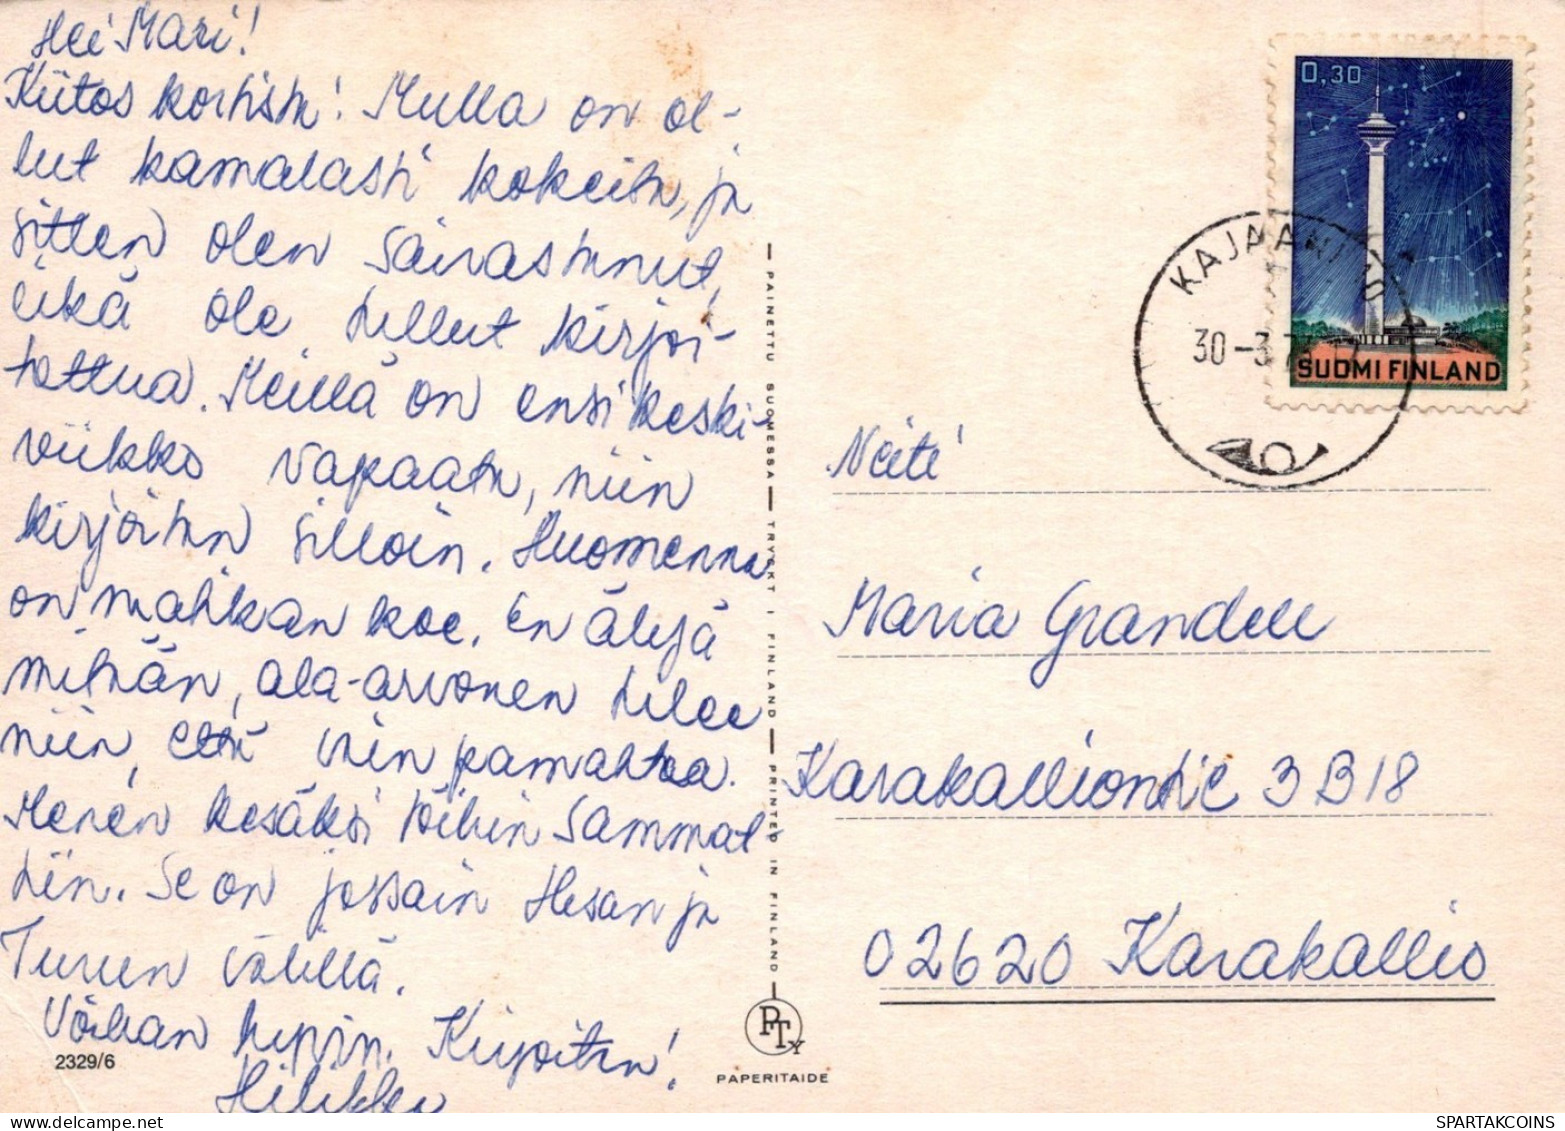 Hei Mari!
Kiitos kortista! Mulla on ol-
lut kamalasti kokeita, ja
sitten olen sairastunut,
eikä ole tullut kirjoi-
tettua. Meillä on ensi keski-
viikko vapaata, niin
kirjoitan silloin. Huomenna
on matikan koe. En älyjä
mitään, ala-arvonen tulee
niin, että vien pamahtaa.
Menen kesäksi töihin Sammat-
tiin. Se on jossain Hesan ja
Turun välillä.
Voihan hipin. Kirjoitan!
2329/6
PAINETTU SUOMESSA — TRYCKT I FINLAND — PRINTED IN FINLAND
PTY
PAPERITAIDE
0,30
SUOMI FINLAND
KAJAANI 10
30-3.7
Neiti
Maria Grandell
Karakalliontie 3 B 18
02620 Karakallio
SPARTAKCOINS